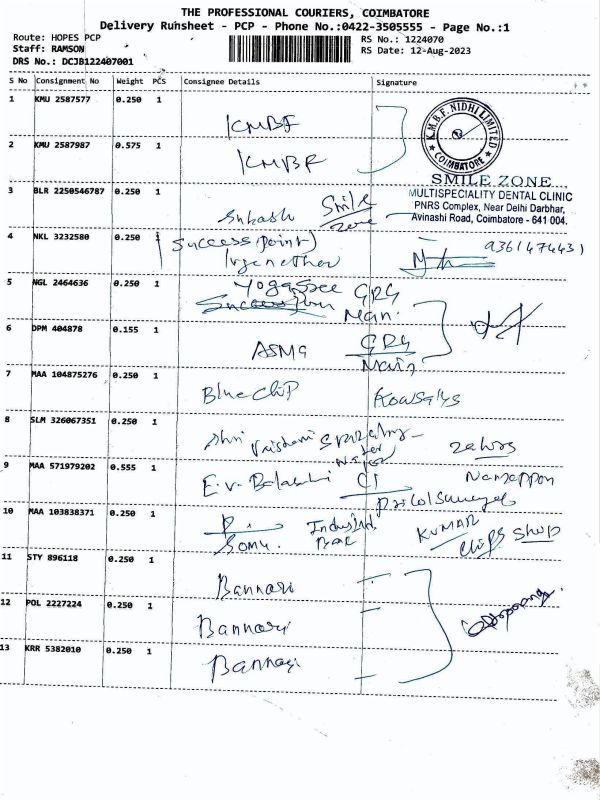 THE PROFESSIONAL COURIERS, COIMBATORE
Delivery Runsheet - PCP - Phone No.:0422-3505555 - Page No.:1
Route: HOPES PCP
Staff: RAMSON
DRS No.: DCJB122407001
RS No.: 1224070
RS Date: 12-Aug-2023
S No Consignment No Weight PCS Consignee Details Signature
1 KMU 2587577 0.250 1 KMBF
K.M.B.F. NIDHI LIMITED
* COIMBATORE *
2 KMU 2587987 0.575 1 KMBF
SMILE ZONE
MULTISPECIALITY DENTAL CLINIC
PNRS Complex, Near Delhi Darbhar,
Avinashi Road, Coimbatore - 641 004.
3 BLR 2250546787 0.250 1 Subash Smile Zone
4 NKL 3232580 0.250 1 Success (Point) 9361474431
5 NGL 2464636 0.250 1 Yogasree GRG
Main.
6 DPM 404878 0.155 1 ASMG GRG
Main
7 MAA 104875276 0.250 1 Bluechip Kowsalya
8 SLM 326067351 0.250 1 Shri Vaishnavi
9 MAA 571979202 0.555 1 E.V. CI
10 MAA 103838371 0.250 1 Somu. KUMAR
Chips Shop
11 STY 896118 0.250 1 Bannari
12 POL 2227224 0.250 1 Bannari
13 KRR 5382010 0.250 1 Bannari